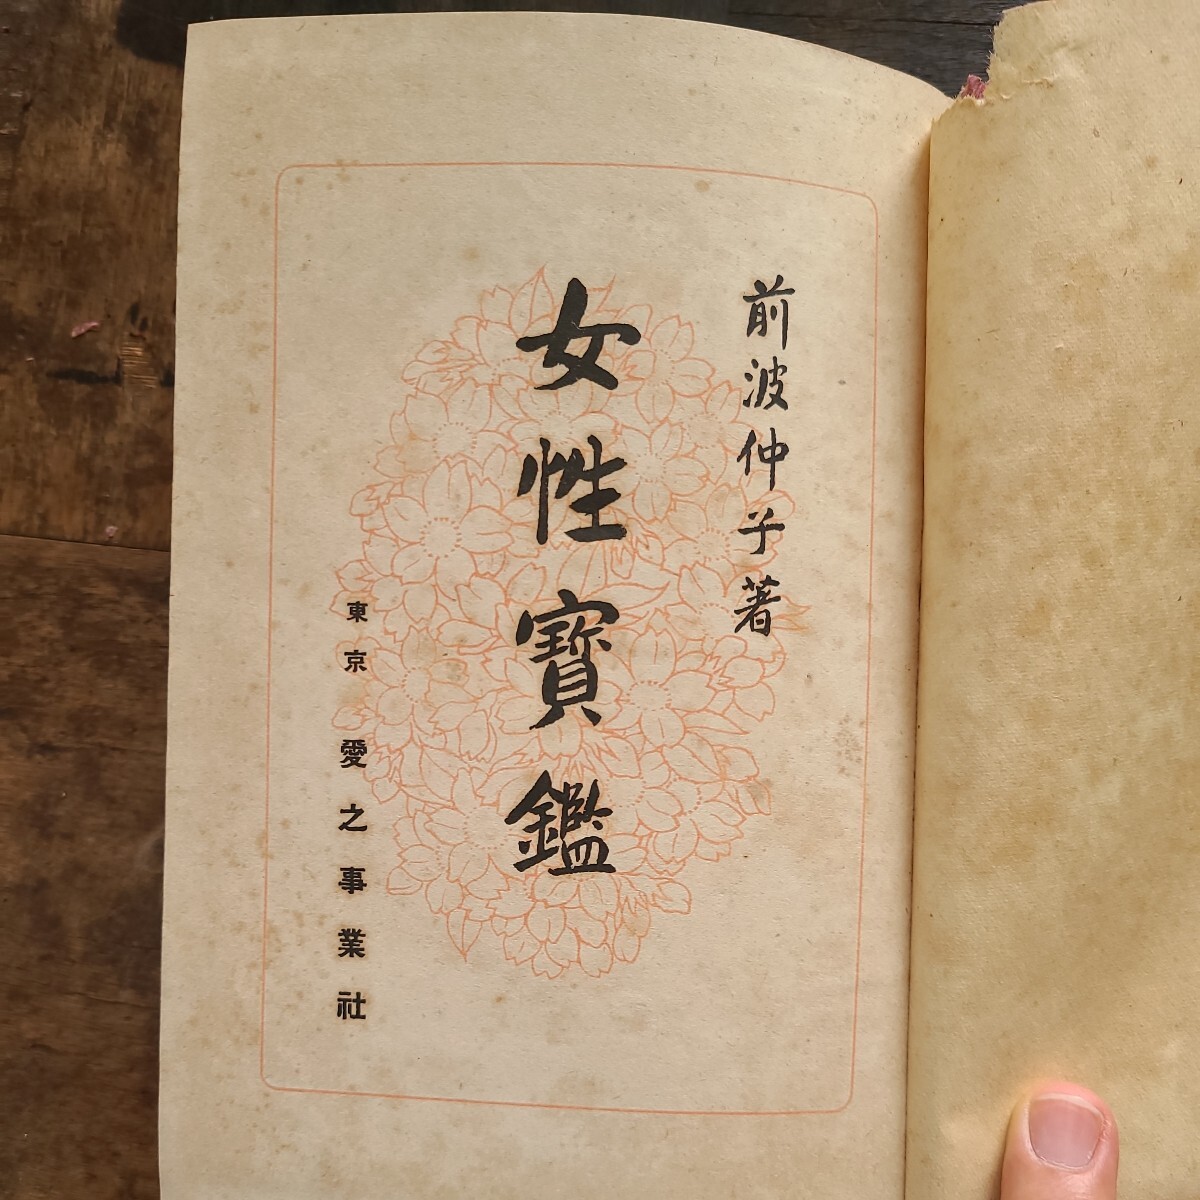 前波仲子著
女性寶鑑
東京 愛之事業社